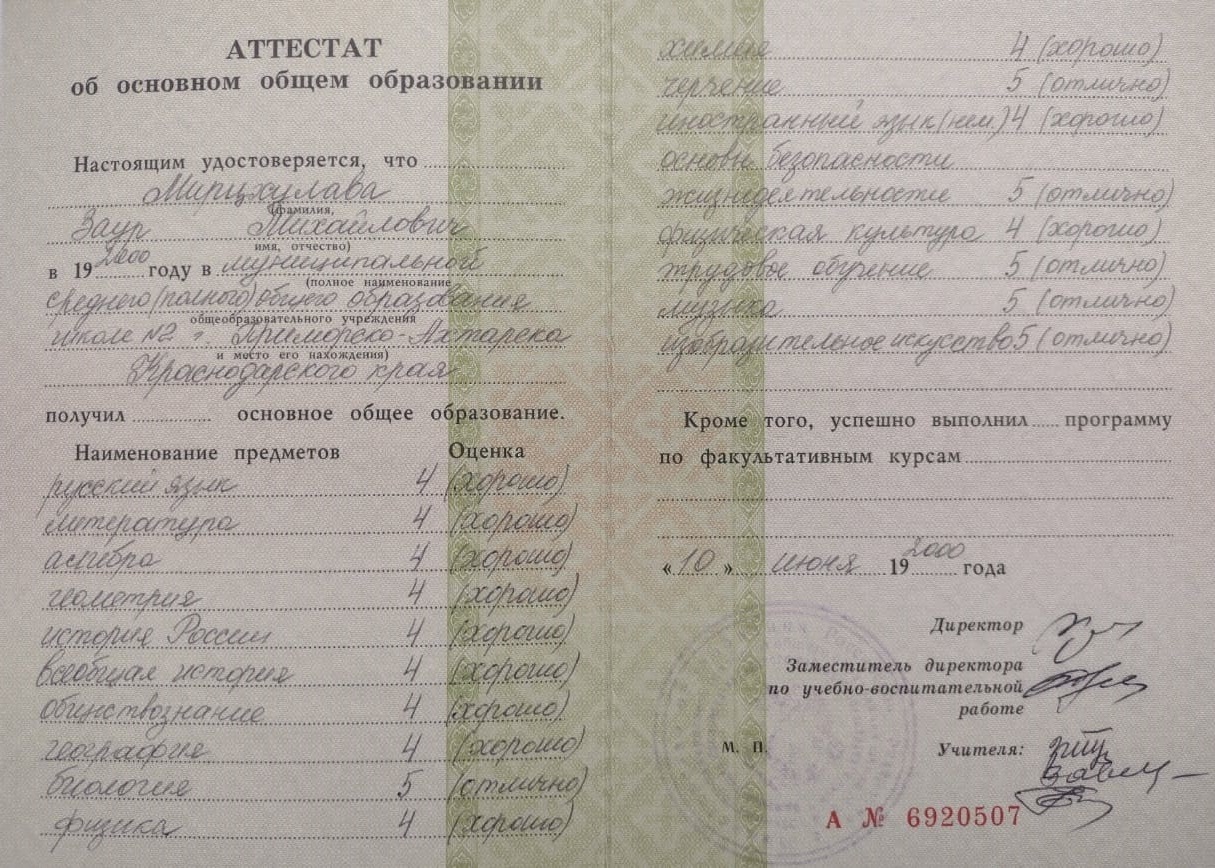 АТТЕСТАТ
об основном общем образовании
Настоящим удостоверяется, что
Мирцхулава
(фамилия,
Заур Михайлович
имя, отчество)
в 19 2000 году в муниципальной
(полное наименование
среднего (полного) общего образования
общеобразовательного учреждения
школе №2 г. Приморско-Ахтарска
и место его нахождения)
Краснодарского края
получил основное общее образование.
Наименование предметов Оценка
русский язык 4 (хорошо)
литература 4 (хорошо)
алгебра 4 (хорошо)
геометрия 4 (хорошо)
история России 4 (хорошо)
всеобщая история 4 (хорошо)
обществознание 4 (хорошо)
география 4 (хорошо)
биология 5 (отлично)
физика 4 (хорошо)
химия 4 (хорошо)
черчение 5 (отлично)
иностранный язык (нем.) 4 (хорошо)
основы безопасности
жизнедеятельности 5 (отлично)
физическая культура 4 (хорошо)
трудовое обучение 5 (отлично)
музыка 5 (отлично)
изобразительное искусство 5 (отлично)
Кроме того, успешно выполнил программу
по факультативным курсам
«10» июня 19 2000 года
Директор
Заместитель директора
по учебно-воспитательной
работе
М. П.
Учителя:
А № 6920507